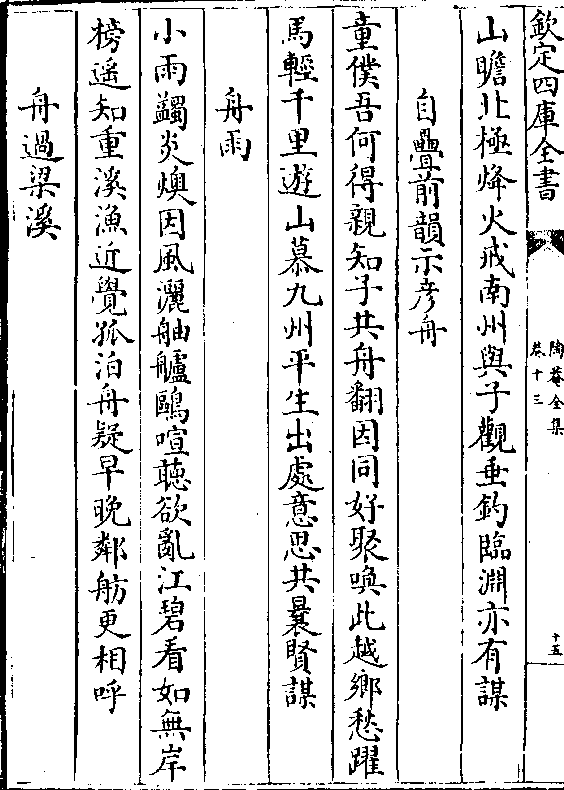 欽定四庫全書
陶菴全集
卷十三
十五
山瞻北極烽火戒南州與子觀垂釣臨淵亦有謀
自疊前韻示彦舟
童僕吾何得親知子共舟翻因同好聚喚此越鄉愁躍
馬輕千里遊山慕九州平生出處意思共曩賢謀
舟雨
小雨蠲炎燠因風灑舳艫鷗喧聽欲亂江碧看如無岸
榜遥知重溪漁近覺孤泊舟疑早晚鄰舫更相呼
舟過梁溪